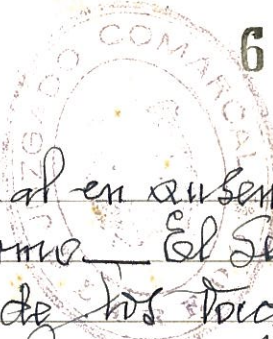 6
JUZGADO COMARCAL
al en ausen
omo — El Se
de los